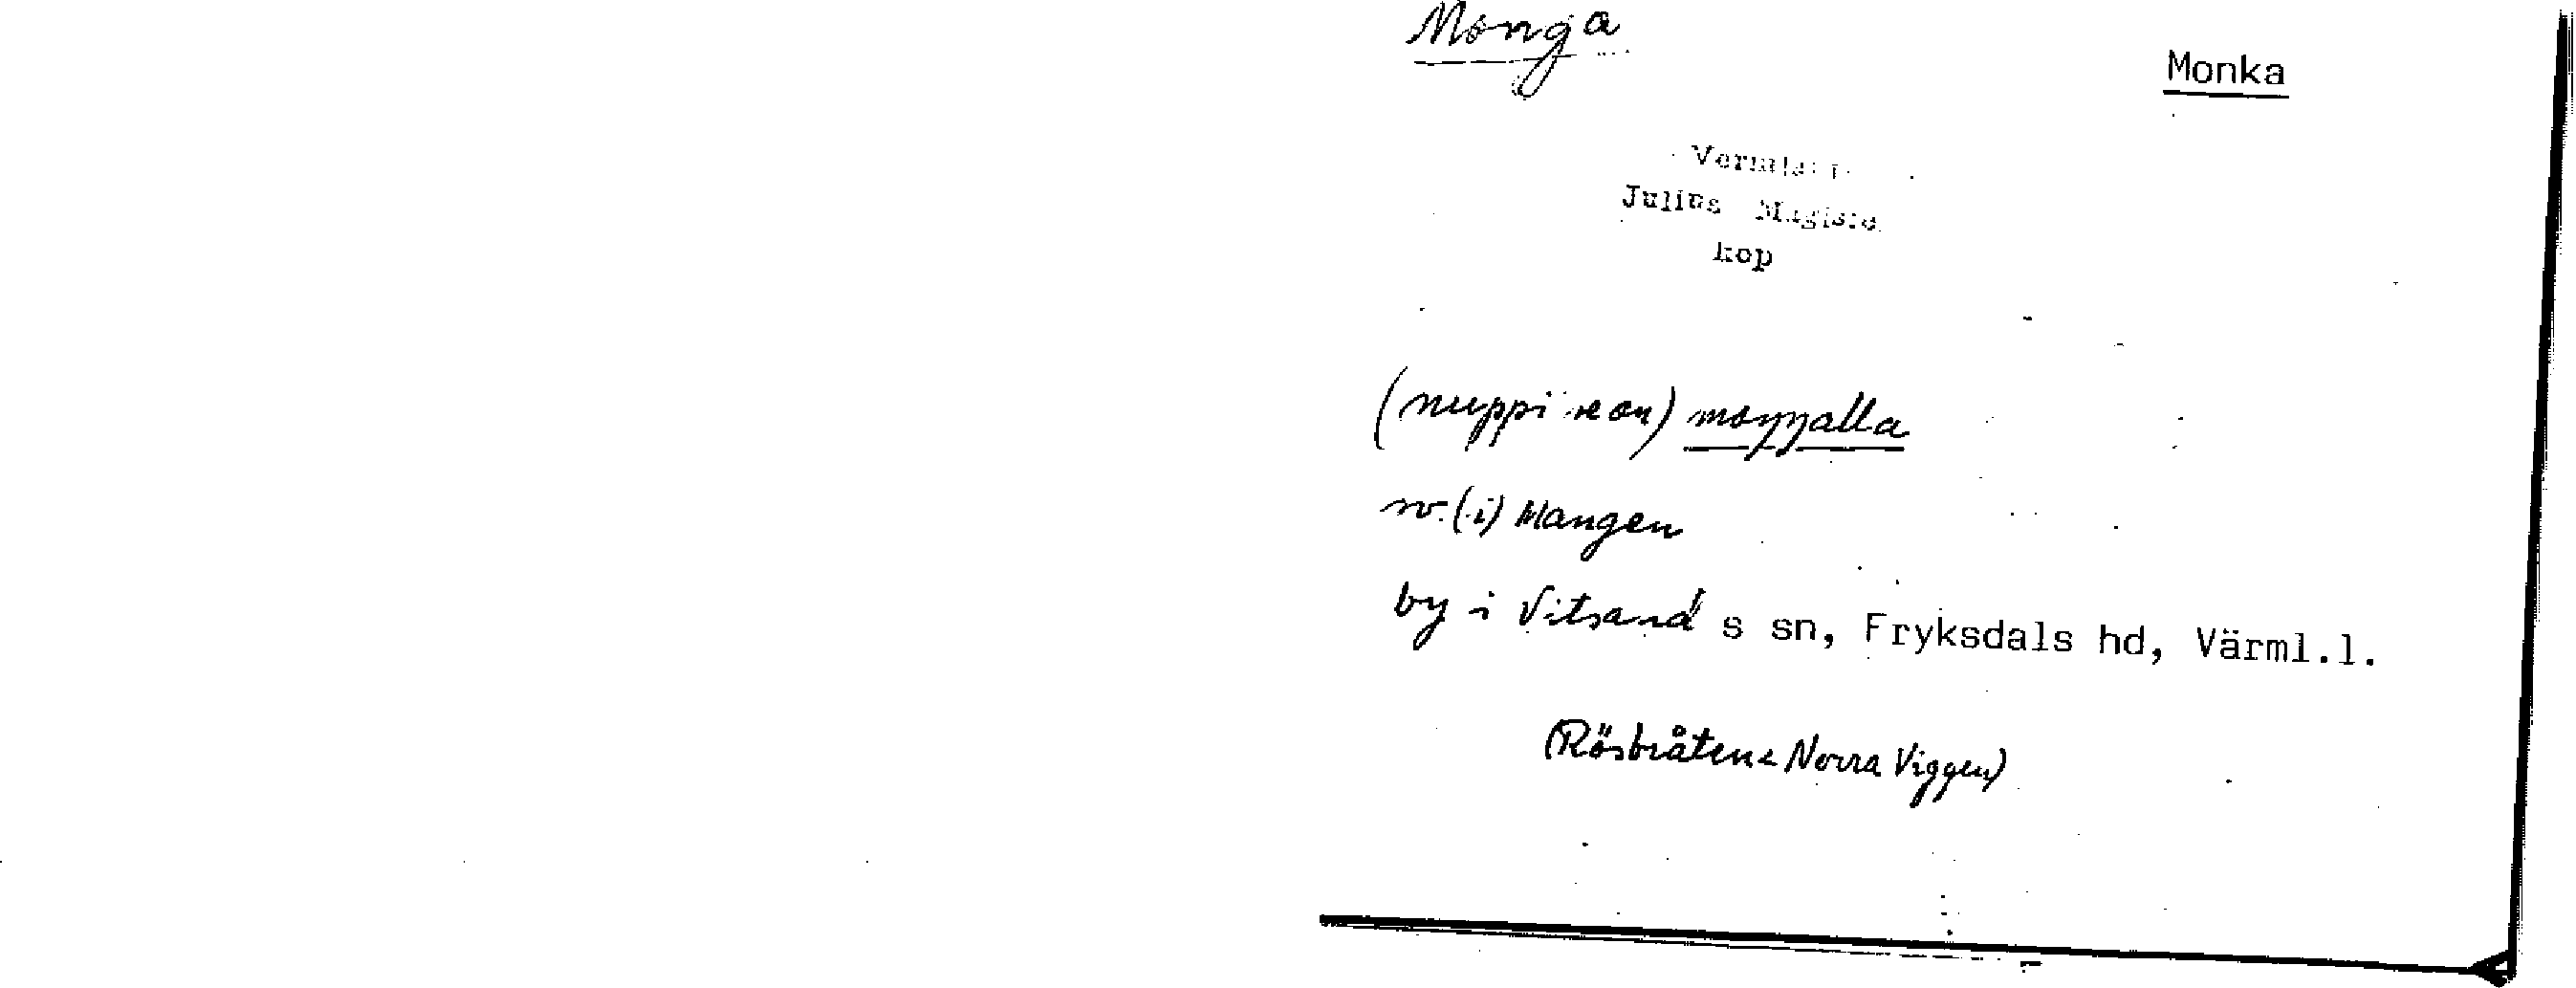 Monga
Monka
Julius Mägiste
kop
(nuppi seon) moŋŋalla
sv. (i) Mangen
by i Vitsand s sn, Fryksdals hd, Värml.l.
(Rösbråtena Norra Viggen)